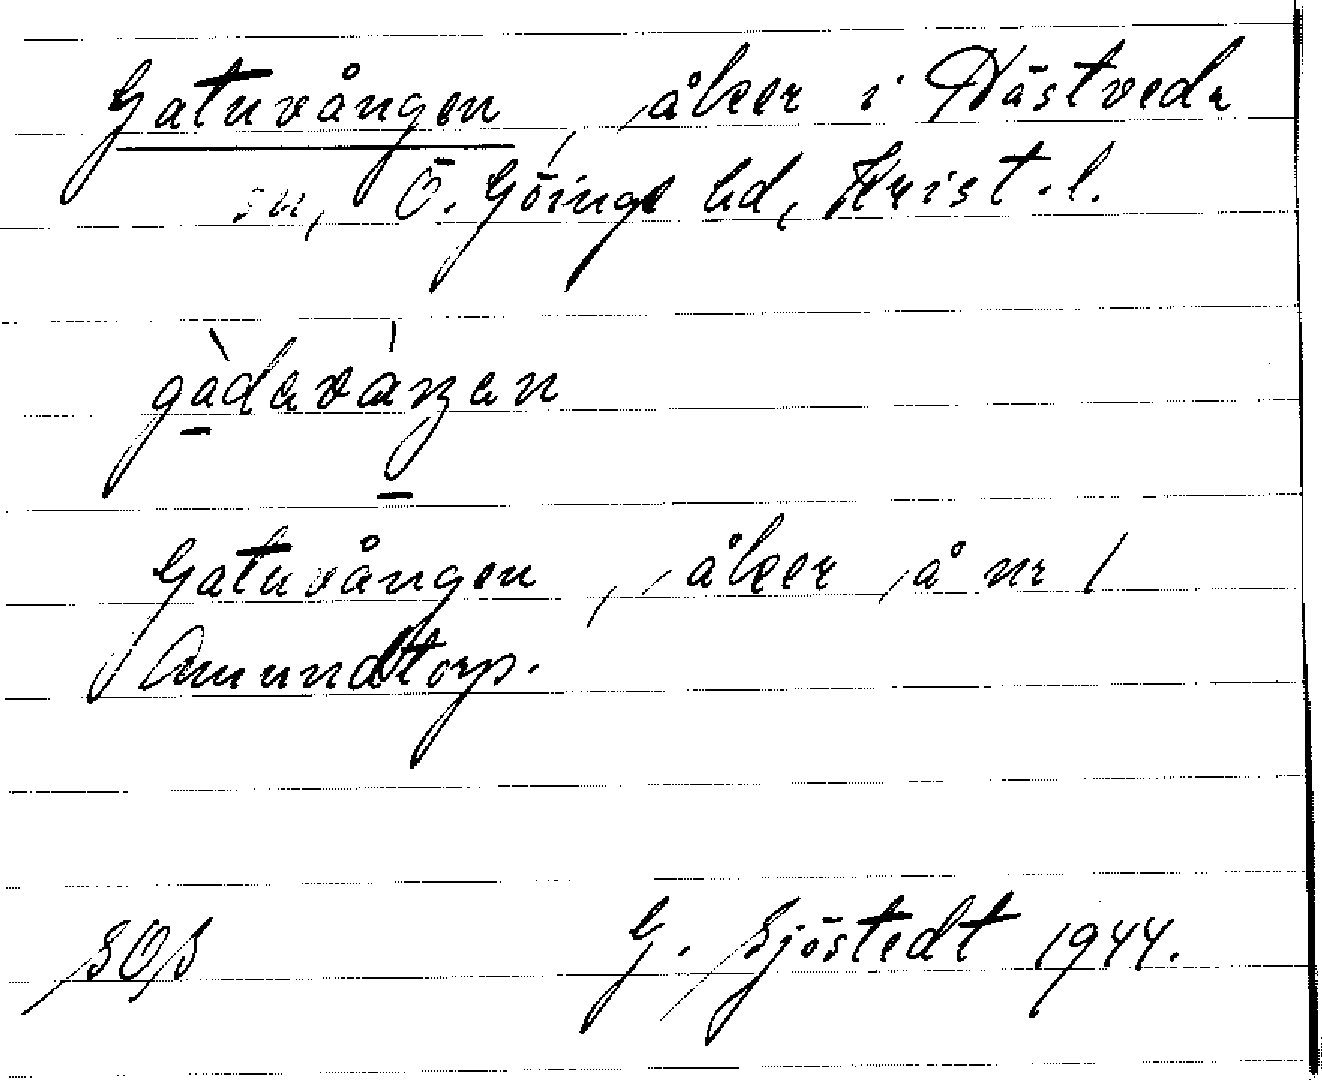 Gatuvången, åker i Hästveda
sn, Ö. Göinge hd, Krist. l.
gàdavàŋen
Gatuvången, åker å nr 1
Amundtorp.
SOS G. Sjöstedt 1944.